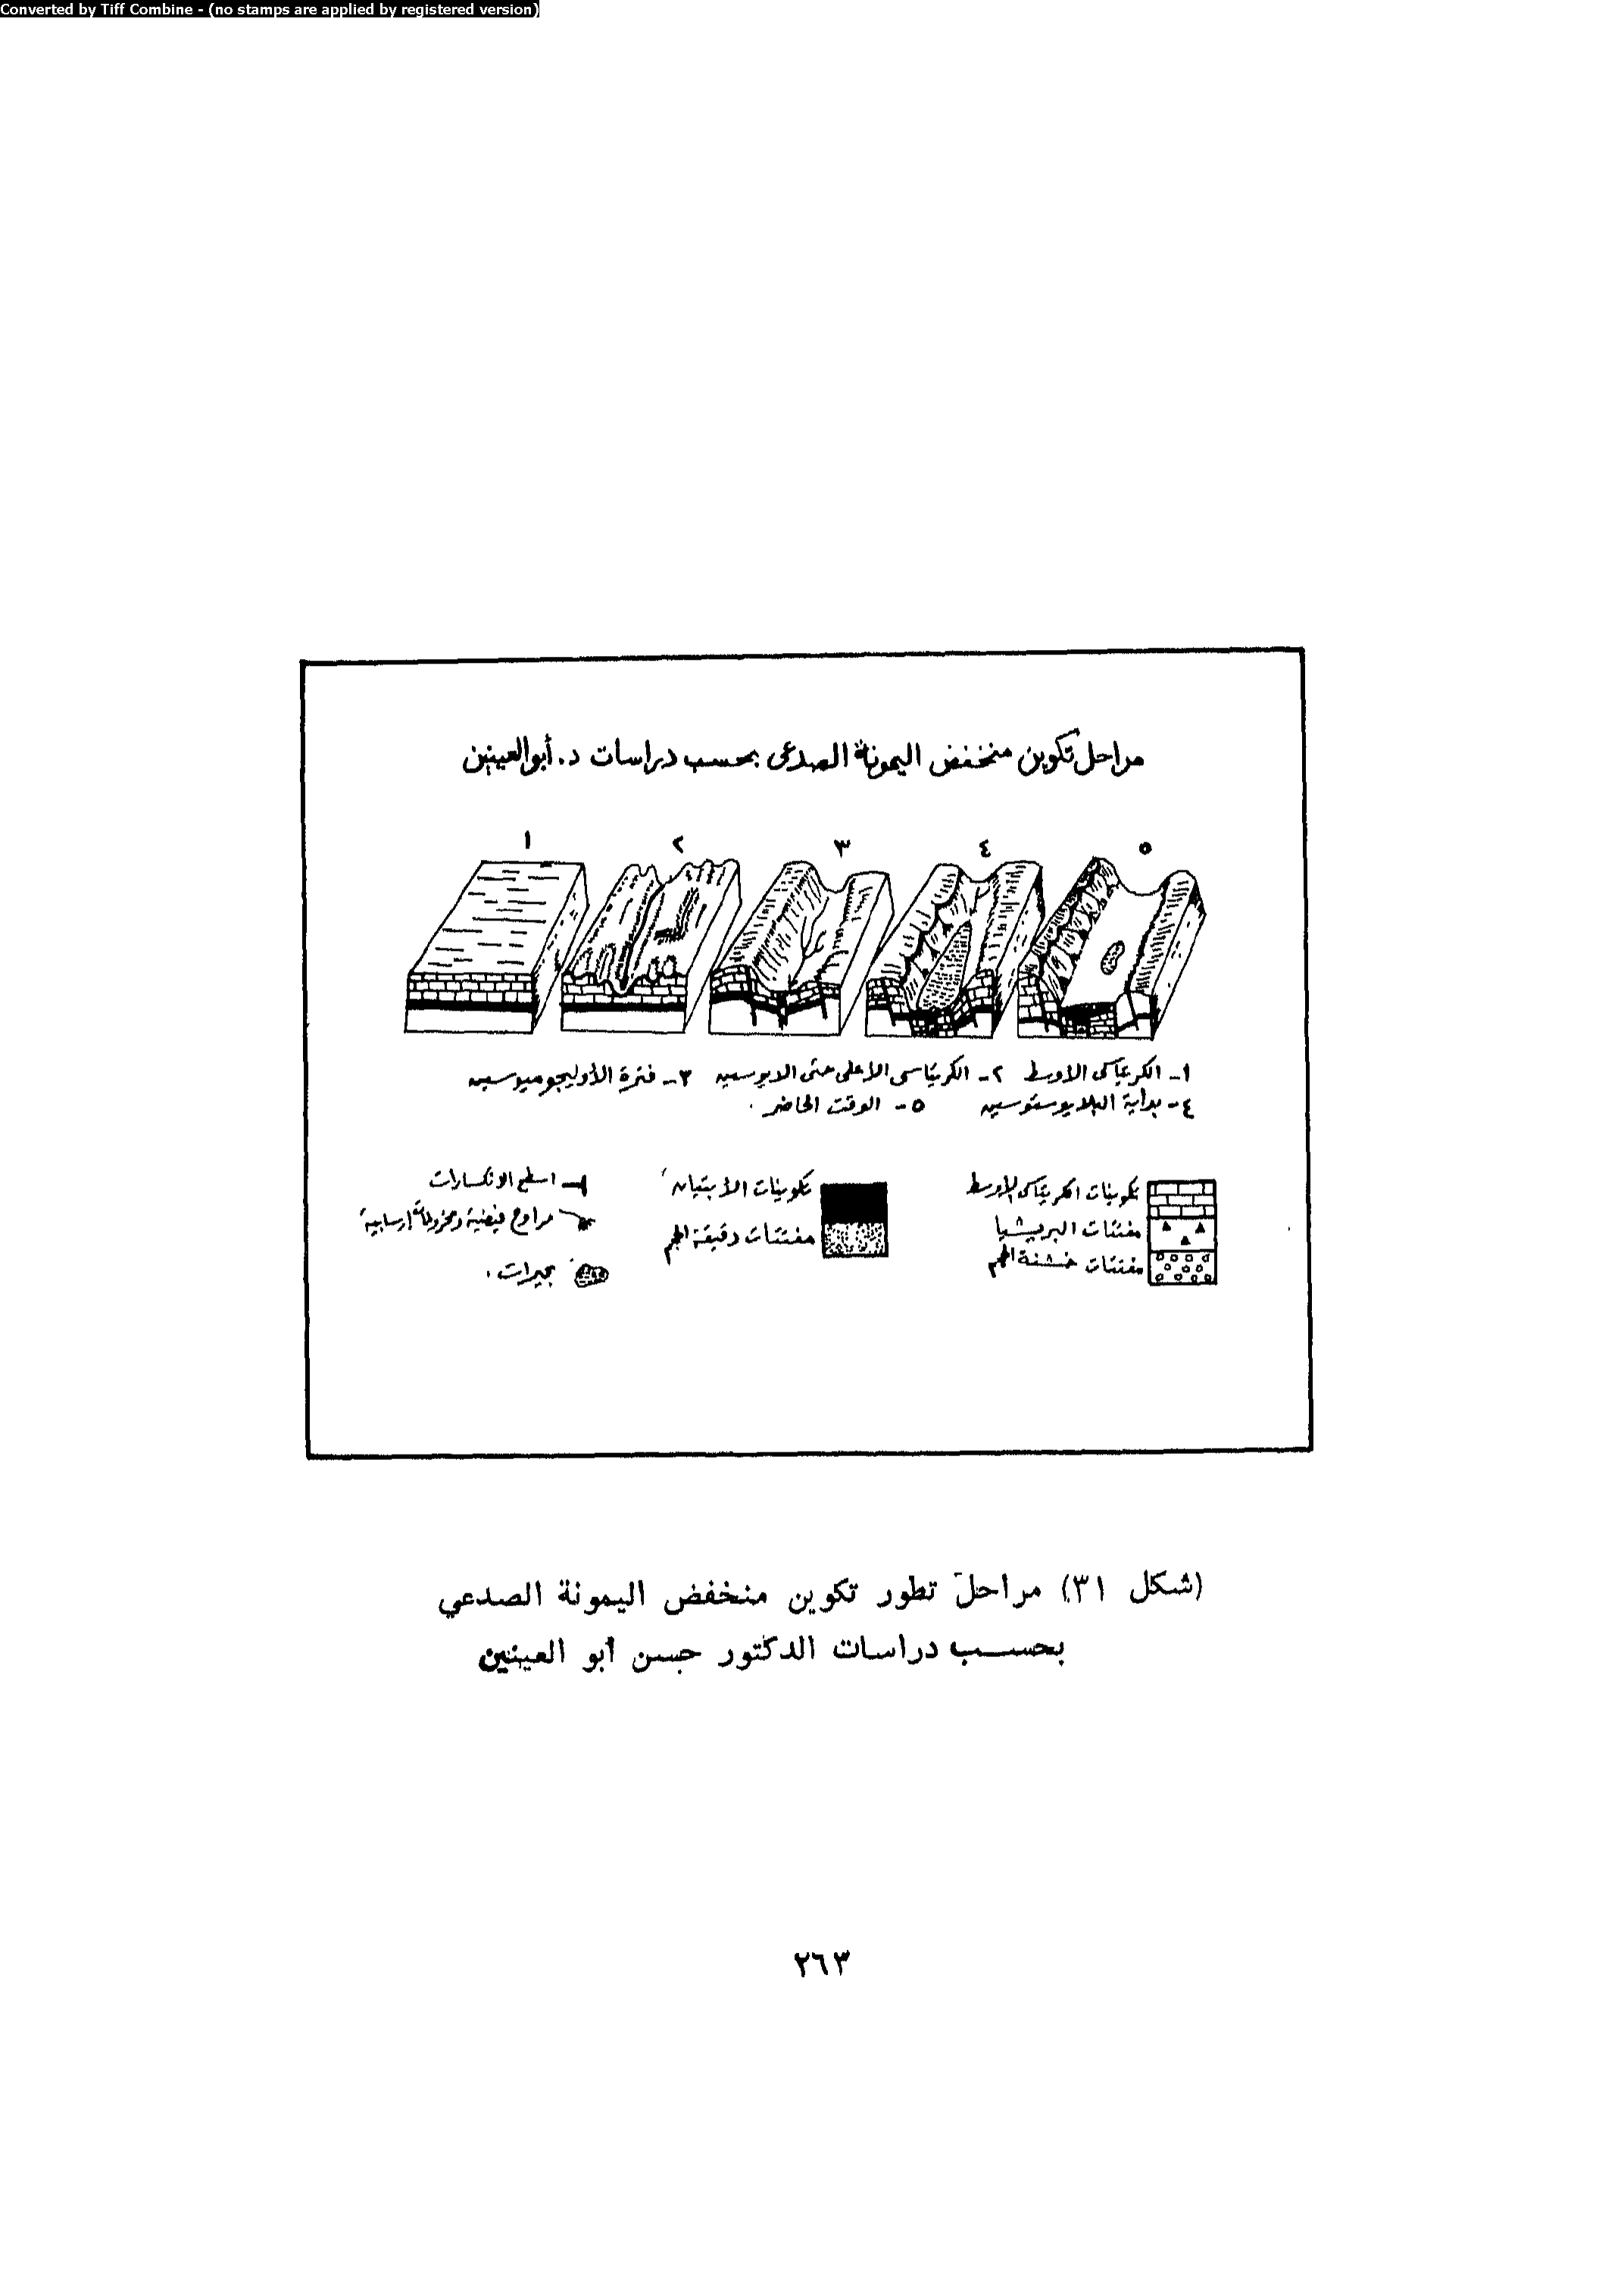 Converted by Tiff Combine - (no stamps are applied by registered version)
مراحل تكوين منخفض اليمونة الصدعى بحسب دراسات د. أبو العينين
١ ٢ ٣ ٤ ٥
١- الكريتاسى الأوسط ٢- الكريتاسى الأعلى حتى الايوسين ٣- فترة الأوليجوميوسين
٤- بداية البلايوستوسين ٥- الوقت الحاضر.
تكوينات الكريتاسى الأوسط
مفتتات البريشيا
مفتتات خشنة الحجم
تكوينات الأبتيان
مفتتات دقيقة الحجم
اسطح الانكسارات
مراوح فيضية ومخروطات ارسابية
بحيرات.
(شكل ٣١) مراحل تطور تكوين منخفض اليمونة الصدعي
بحسب دراسات الدكتور حسن أبو العينين
٢٦٣